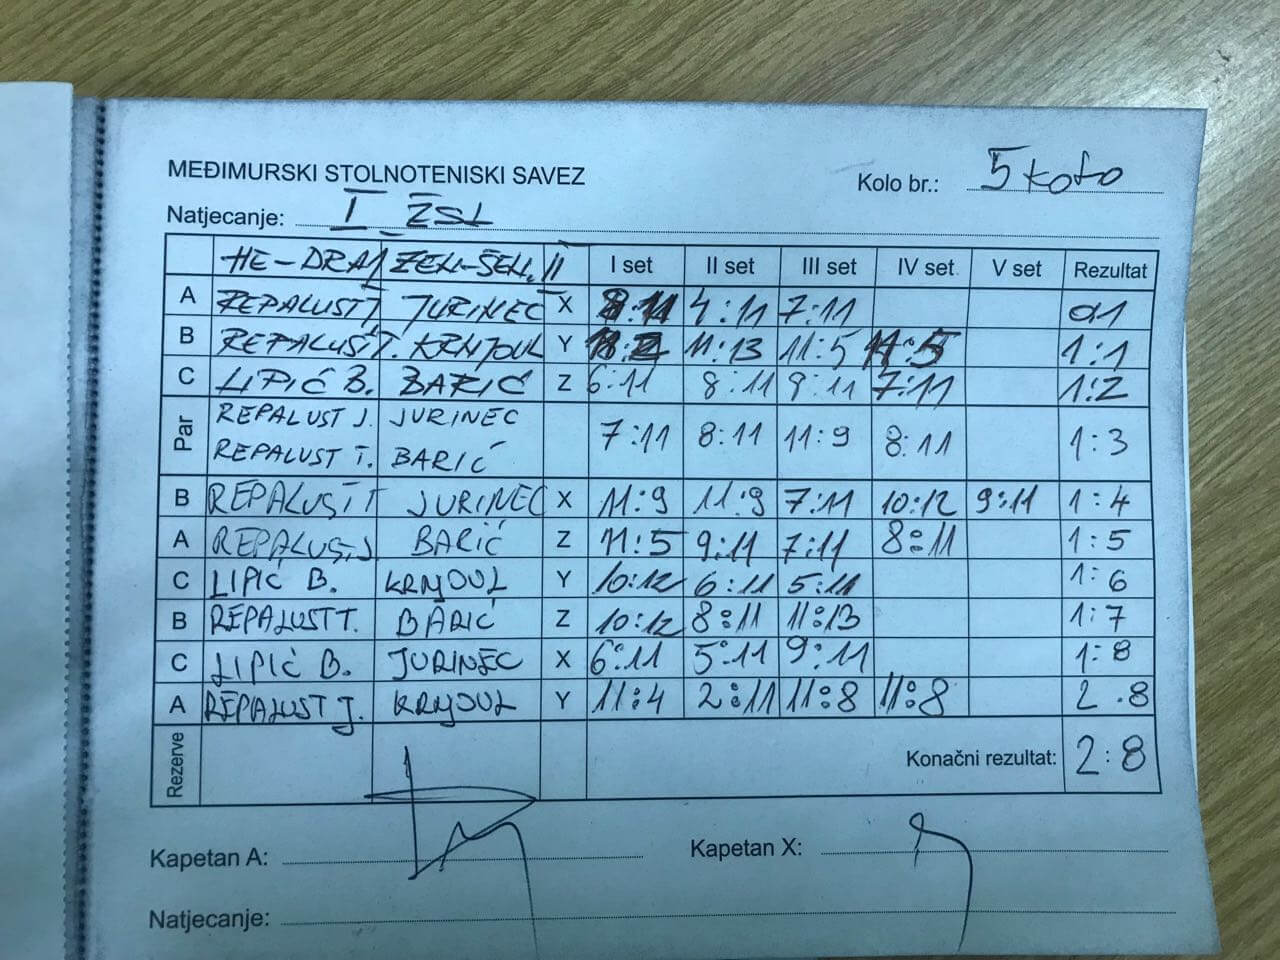 MEĐIMURSKI STOLNOTENISKI SAVEZ
Kolo br.: 5 kolo
Natjecanje: I ŽSL
HE-DRAJ ZEL-ŠEL. II I set II set III set IV set V set Rezultat
A REPALUST J. JURINEC X 8:11 4:11 7:11 0:1
B REPALUST T. KRNJOUL Y 11:13 11:5 11:5 1:1
C LIPIĆ B. BARIĆ Z 6:11 8:11 9:11 7:11 1:2
Par REPALUST J. JURINEC 7:11 8:11 11:9 8:11 1:3
REPALUST T. BARIĆ
B REPALUST T JURINEC X 11:9 11:9 7:11 10:12 9:11 1:4
A REPALUST J. BARIĆ Z 11:5 9:11 7:11 8:11 1:5
C LIPIĆ B. KRNJOUL Y 10:12 6:11 5:11 1:6
B REPALUST T. BARIĆ Z 10:12 8:11 11:13 1:7
C LIPIĆ B. JURINEC X 6:11 5:11 9:11 1:8
A REPALUST J. KRNJOUL Y 11:4 2:11 11:8 11:8 2.8
Rezerve Konačni rezultat: 2:8
Kapetan A: Kapetan X:
Natjecanje: